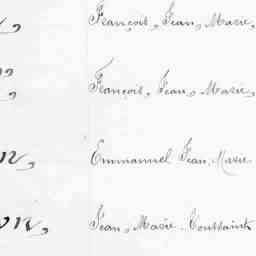 François, Jean, Marie,
François, Jean, Marie,
Emmanuel Jean, Marie
Jean, Marie, Toussaint